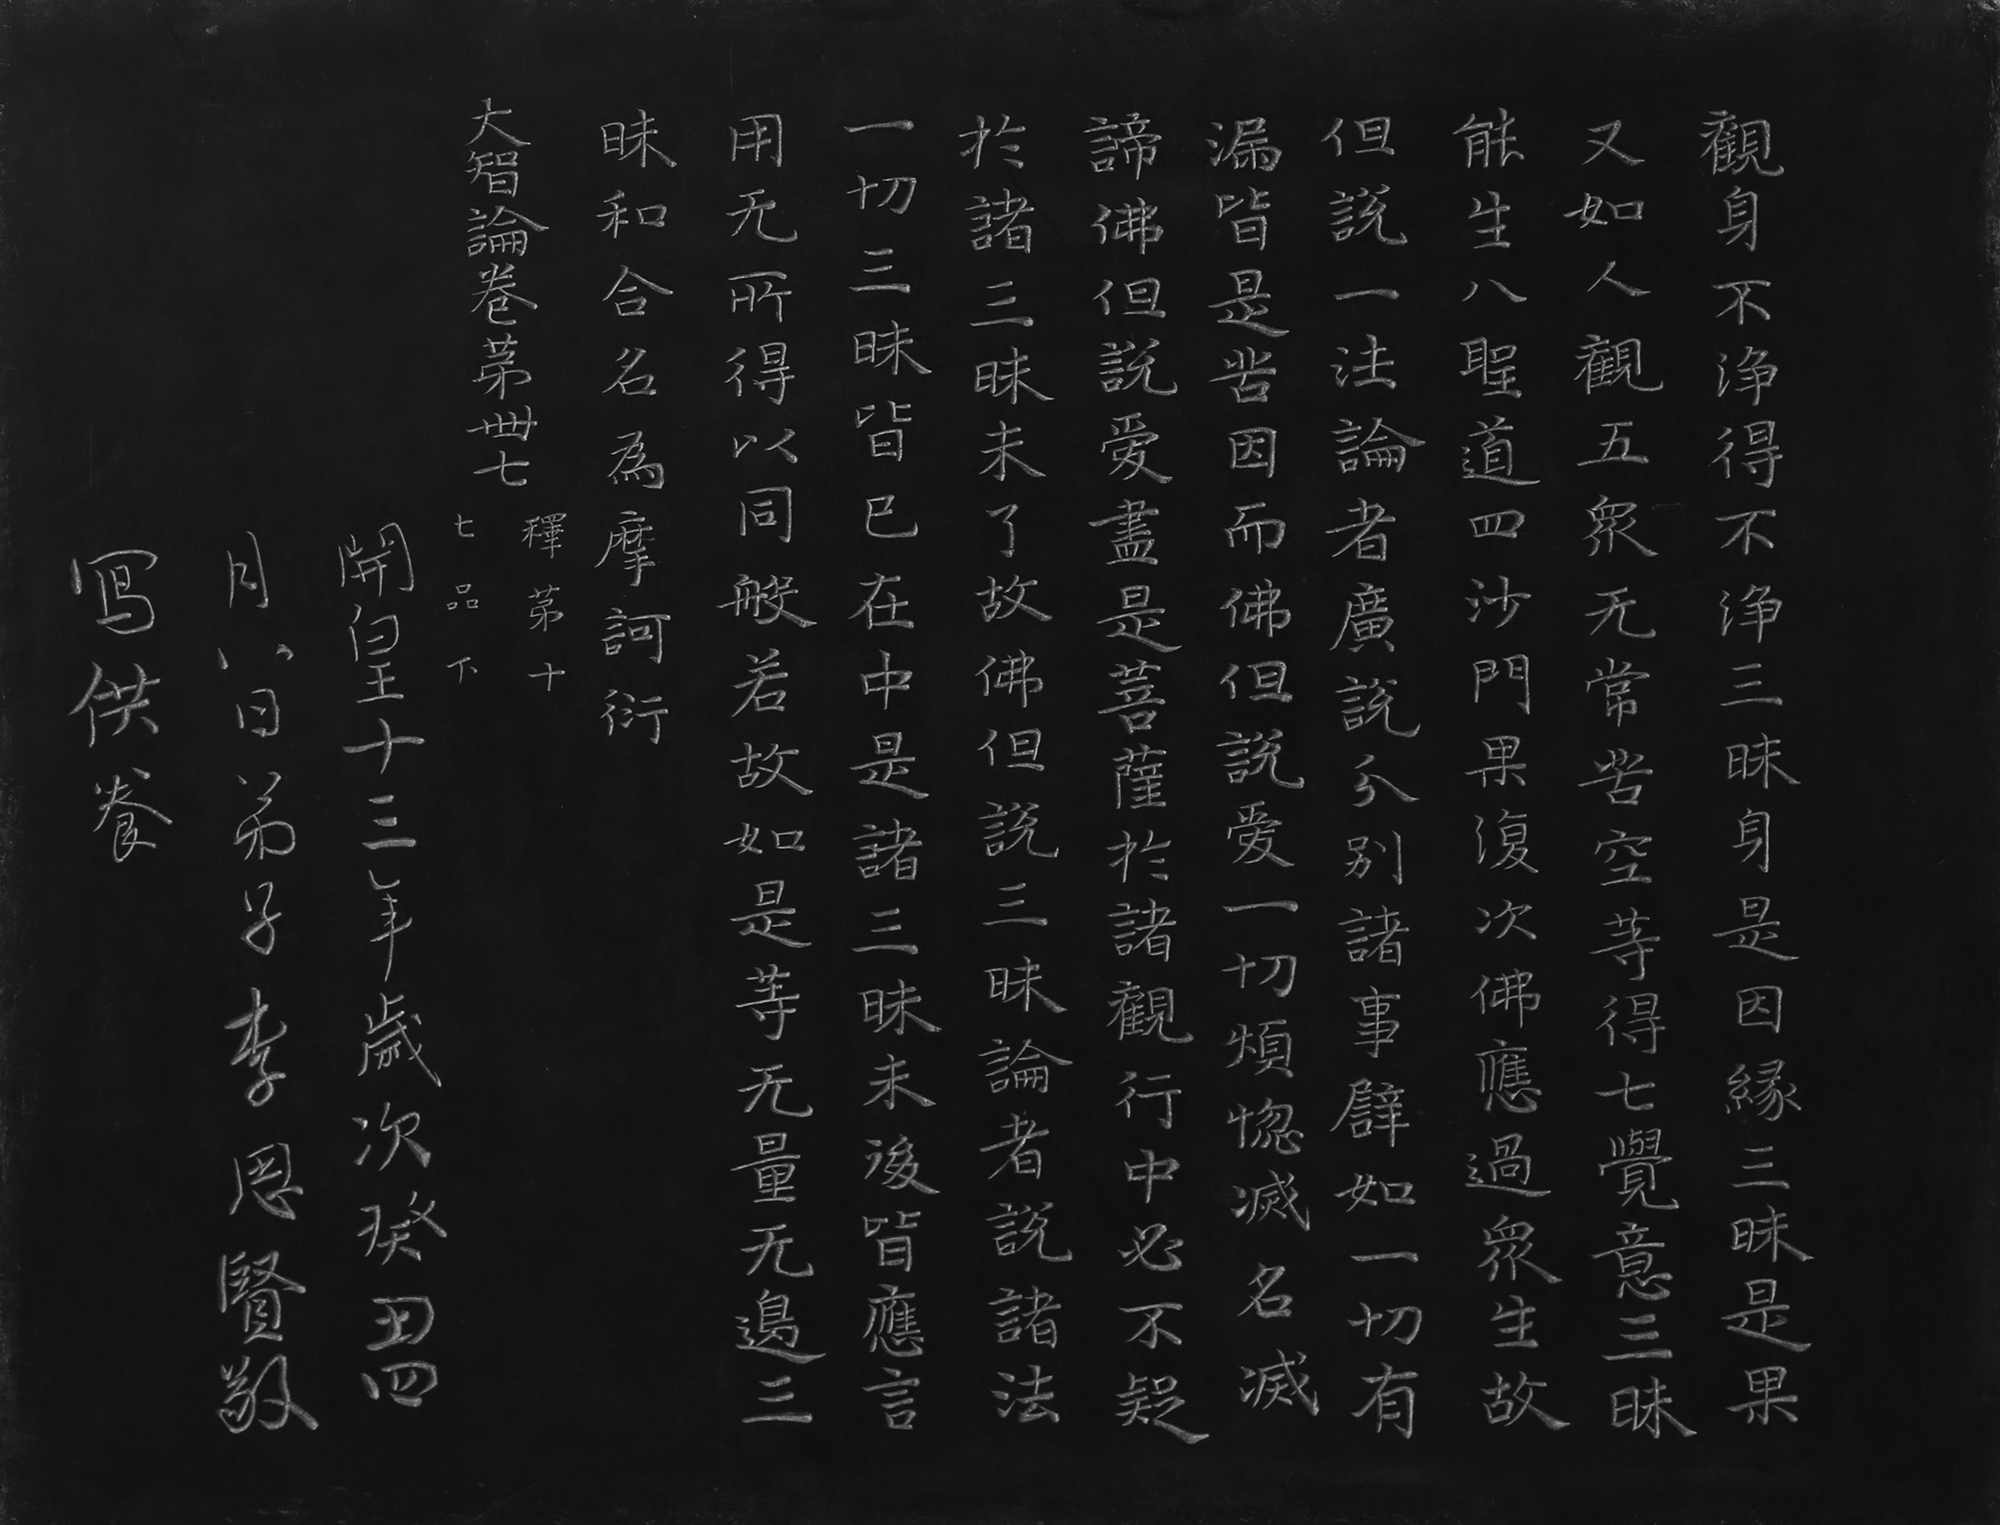 觀身不淨得不淨三昧身是因緣三昧是果
又如人觀五衆无常苦空等得七覺意三昧
能生八聖道四沙門果復次佛應適衆生故
但說一法論者廣說分別諸事譬如一切有
漏皆是苦因而佛但說愛一切煩惱滅名滅
諦佛但說愛盡是菩薩於諸觀行中必不疑
於諸三昧未了故佛但說三昧論者說諸法
一切三昧皆已在中是諸三昧末後皆應言
用无所得以同般若故如是等无量无邊三
昧和合名為摩訶衍
大智論卷第卌七 釋第十
七品下
開皇十三年歲次癸丑四
月八日弟子李思賢敬
寫供養